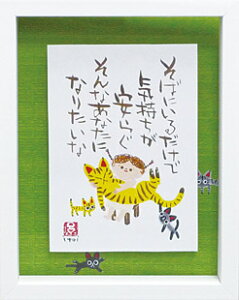 そばにいるだけで
気持ちが
安らぐ
そんなあなたに、
なりたいな